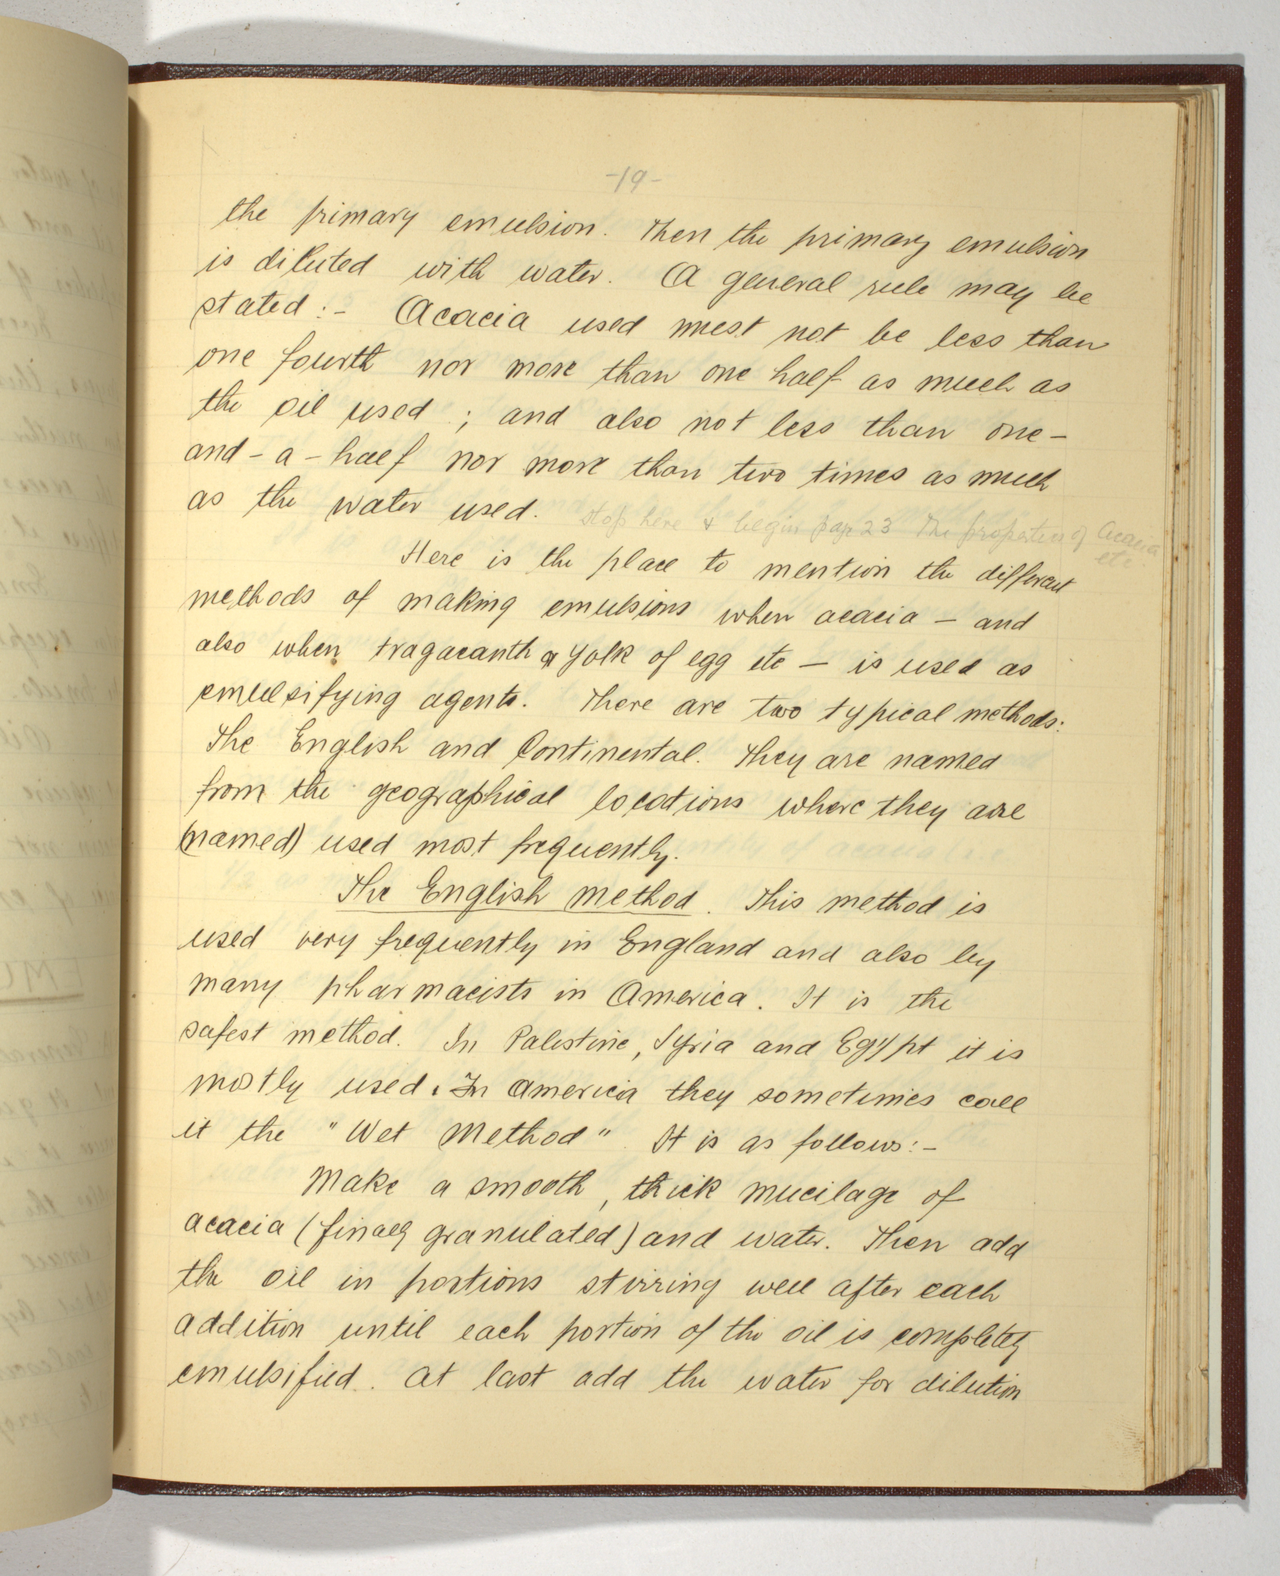 -19-
the primary emulsion. Then the primary emulsion
is diluted with water. A general rule may be
stated:- Acacia used must not be less than
one fourth nor more than one half as much as
the oil used ; and also not less than one-
and-a-half nor more than two times as much
as the water used. Stop here & begin page 23 The properties of Acacia
etc.
Here is the place to mention the different
methods of making emulsions when acacia - and
also when tragacanth or yolk of egg etc - is used as
emulsifying agents. There are two typical methods:
The English and Continental. They are named
from the geographical locations where they are
(named) used most frequently.
The English Method. This method is
used very frequently in England and also by
many pharmacists in America. It is the
safest method. In Palestine, Syria and Egypt it is
mostly used. In America they sometimes call
it the "Wet Method" It is as follows:-
Make a smooth, thick mucilage of
acacia (finely granulated) and water. Then add
the oil in portions stirring well after each
addition until each portion of the oil is completely
emulsified. At last add the water for dilution